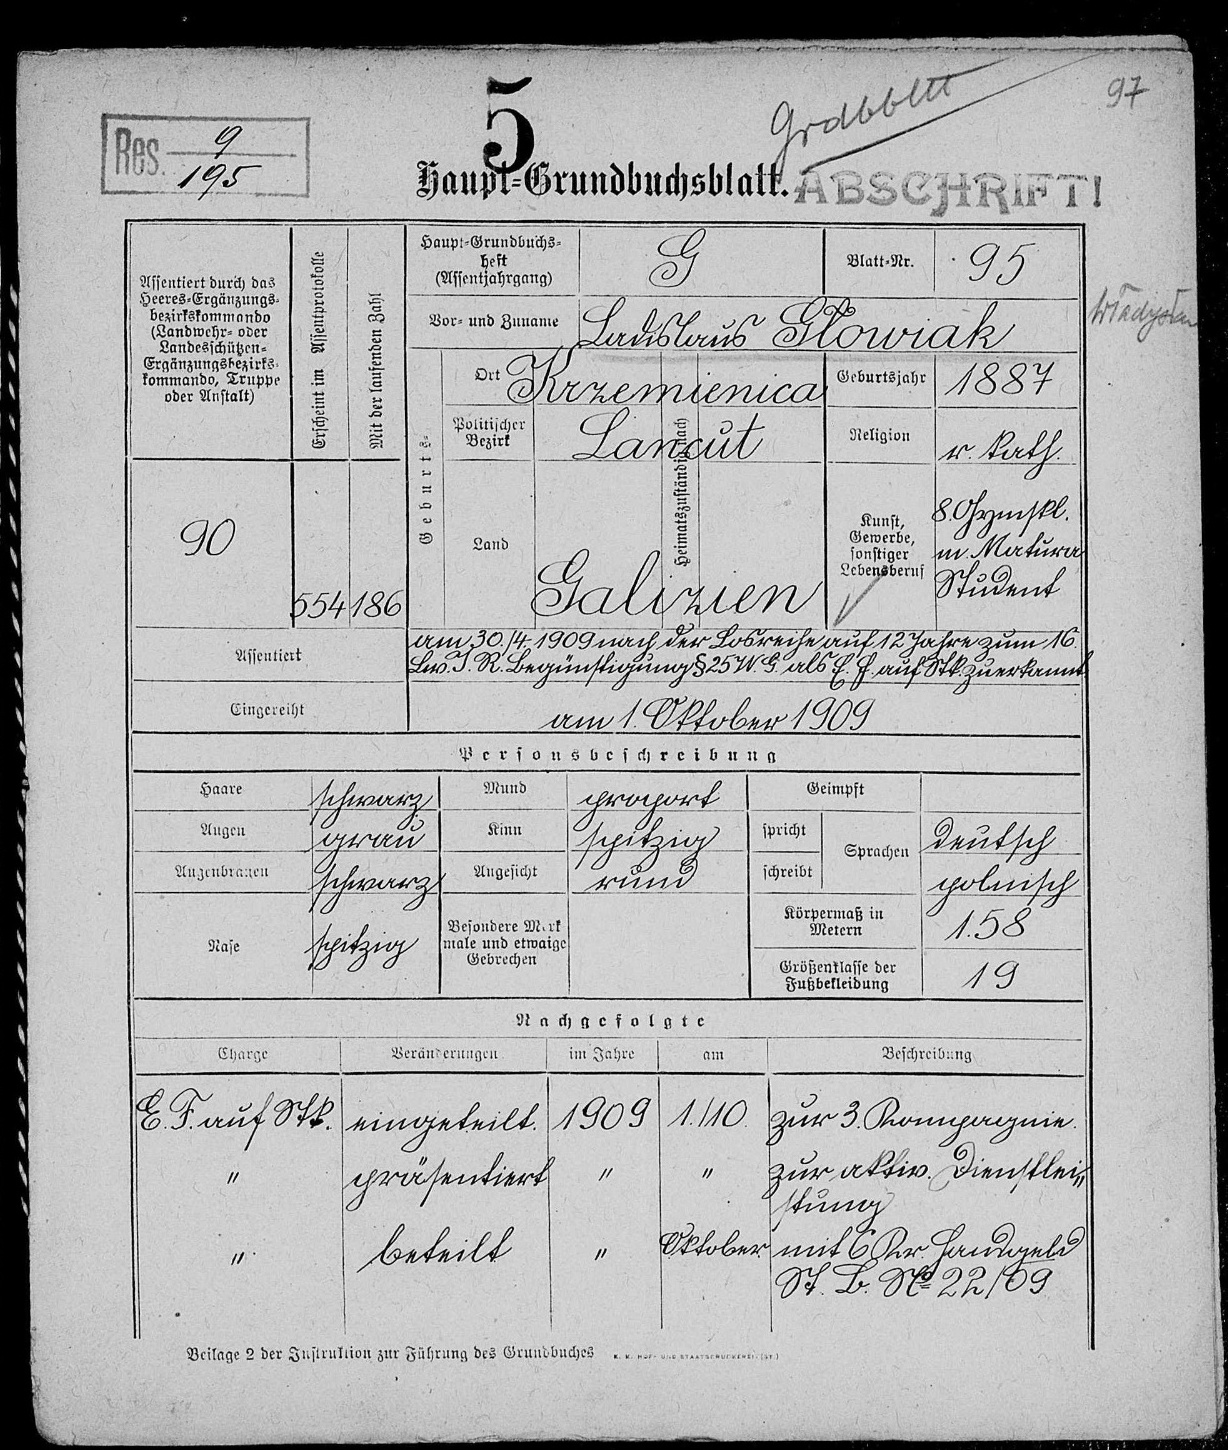 97
5
Grdbblt
Res. 9
195
Haupt-Grundbuchsblatt.
ABSCHRIFT!
Assentiert durch das
Heeres-Ergänzungs-
bezirkskommando
(Landwehr- oder
Landesschützen-
Ergänzungsbezirks-
kommando, Truppe
oder Anstalt)
Erscheint im Assentprotokolle
Mit der laufenden Zahl
90
554
186
Haupt-Grundbuchs-
heft
(Assentjahrgang)
G
Blatt-Nr.
95
Vor- und Zuname
Ladislaus Głowiak
Władysław
Geburts-
Ort
Krzemienica
Geburtsjahr
1887
Politischer
Bezirk
Lancut
Heimatszuständig nach
Religion
r. kath.
Land
Galizien
Kunst,
Gewerbe,
sonstiger
Lebensberuf
8. Gymskl.
m. Matura
Student
Assentiert
am 30./4. 1909 nach der Losreihe auf 12 Jahre zum 16.
Lw. I. R. Begünstigung § 25 W. G. als E. F. auf Stk. zuerkannt
Eingereiht
am 1. Oktober 1909
Personsbeschreibung
Haare
schwarz
Mund
proport
Geimpft
Augen
grau
Kinn
spitzig
spricht
Sprachen
deutsch
Augenbrauen
schwarz
Angesicht
rund
schreibt
polnisch
Nase
spitzig
Besondere Merk
male und etwaige
Gebrechen
Körpermaß in
Metern
1.58
Größenklasse der
Fußbekleidung
19
Nachgefolgte
Charge Veränderungen im Jahre am Beschreibung
E. F. auf Stk. eingeteilt. 1909 1./10. zur 3. Kompagnie.
" präsentiert " " zur aktiv. Dienstlei"
stung
" beteilt " Oktober mit 6 Kr. Handgeld
St. B. No 22/09
Beilage 2 der Instruktion zur Führung des Grundbuches K. K. HOF- UND STAATSDRUCKEREI. (ST.)